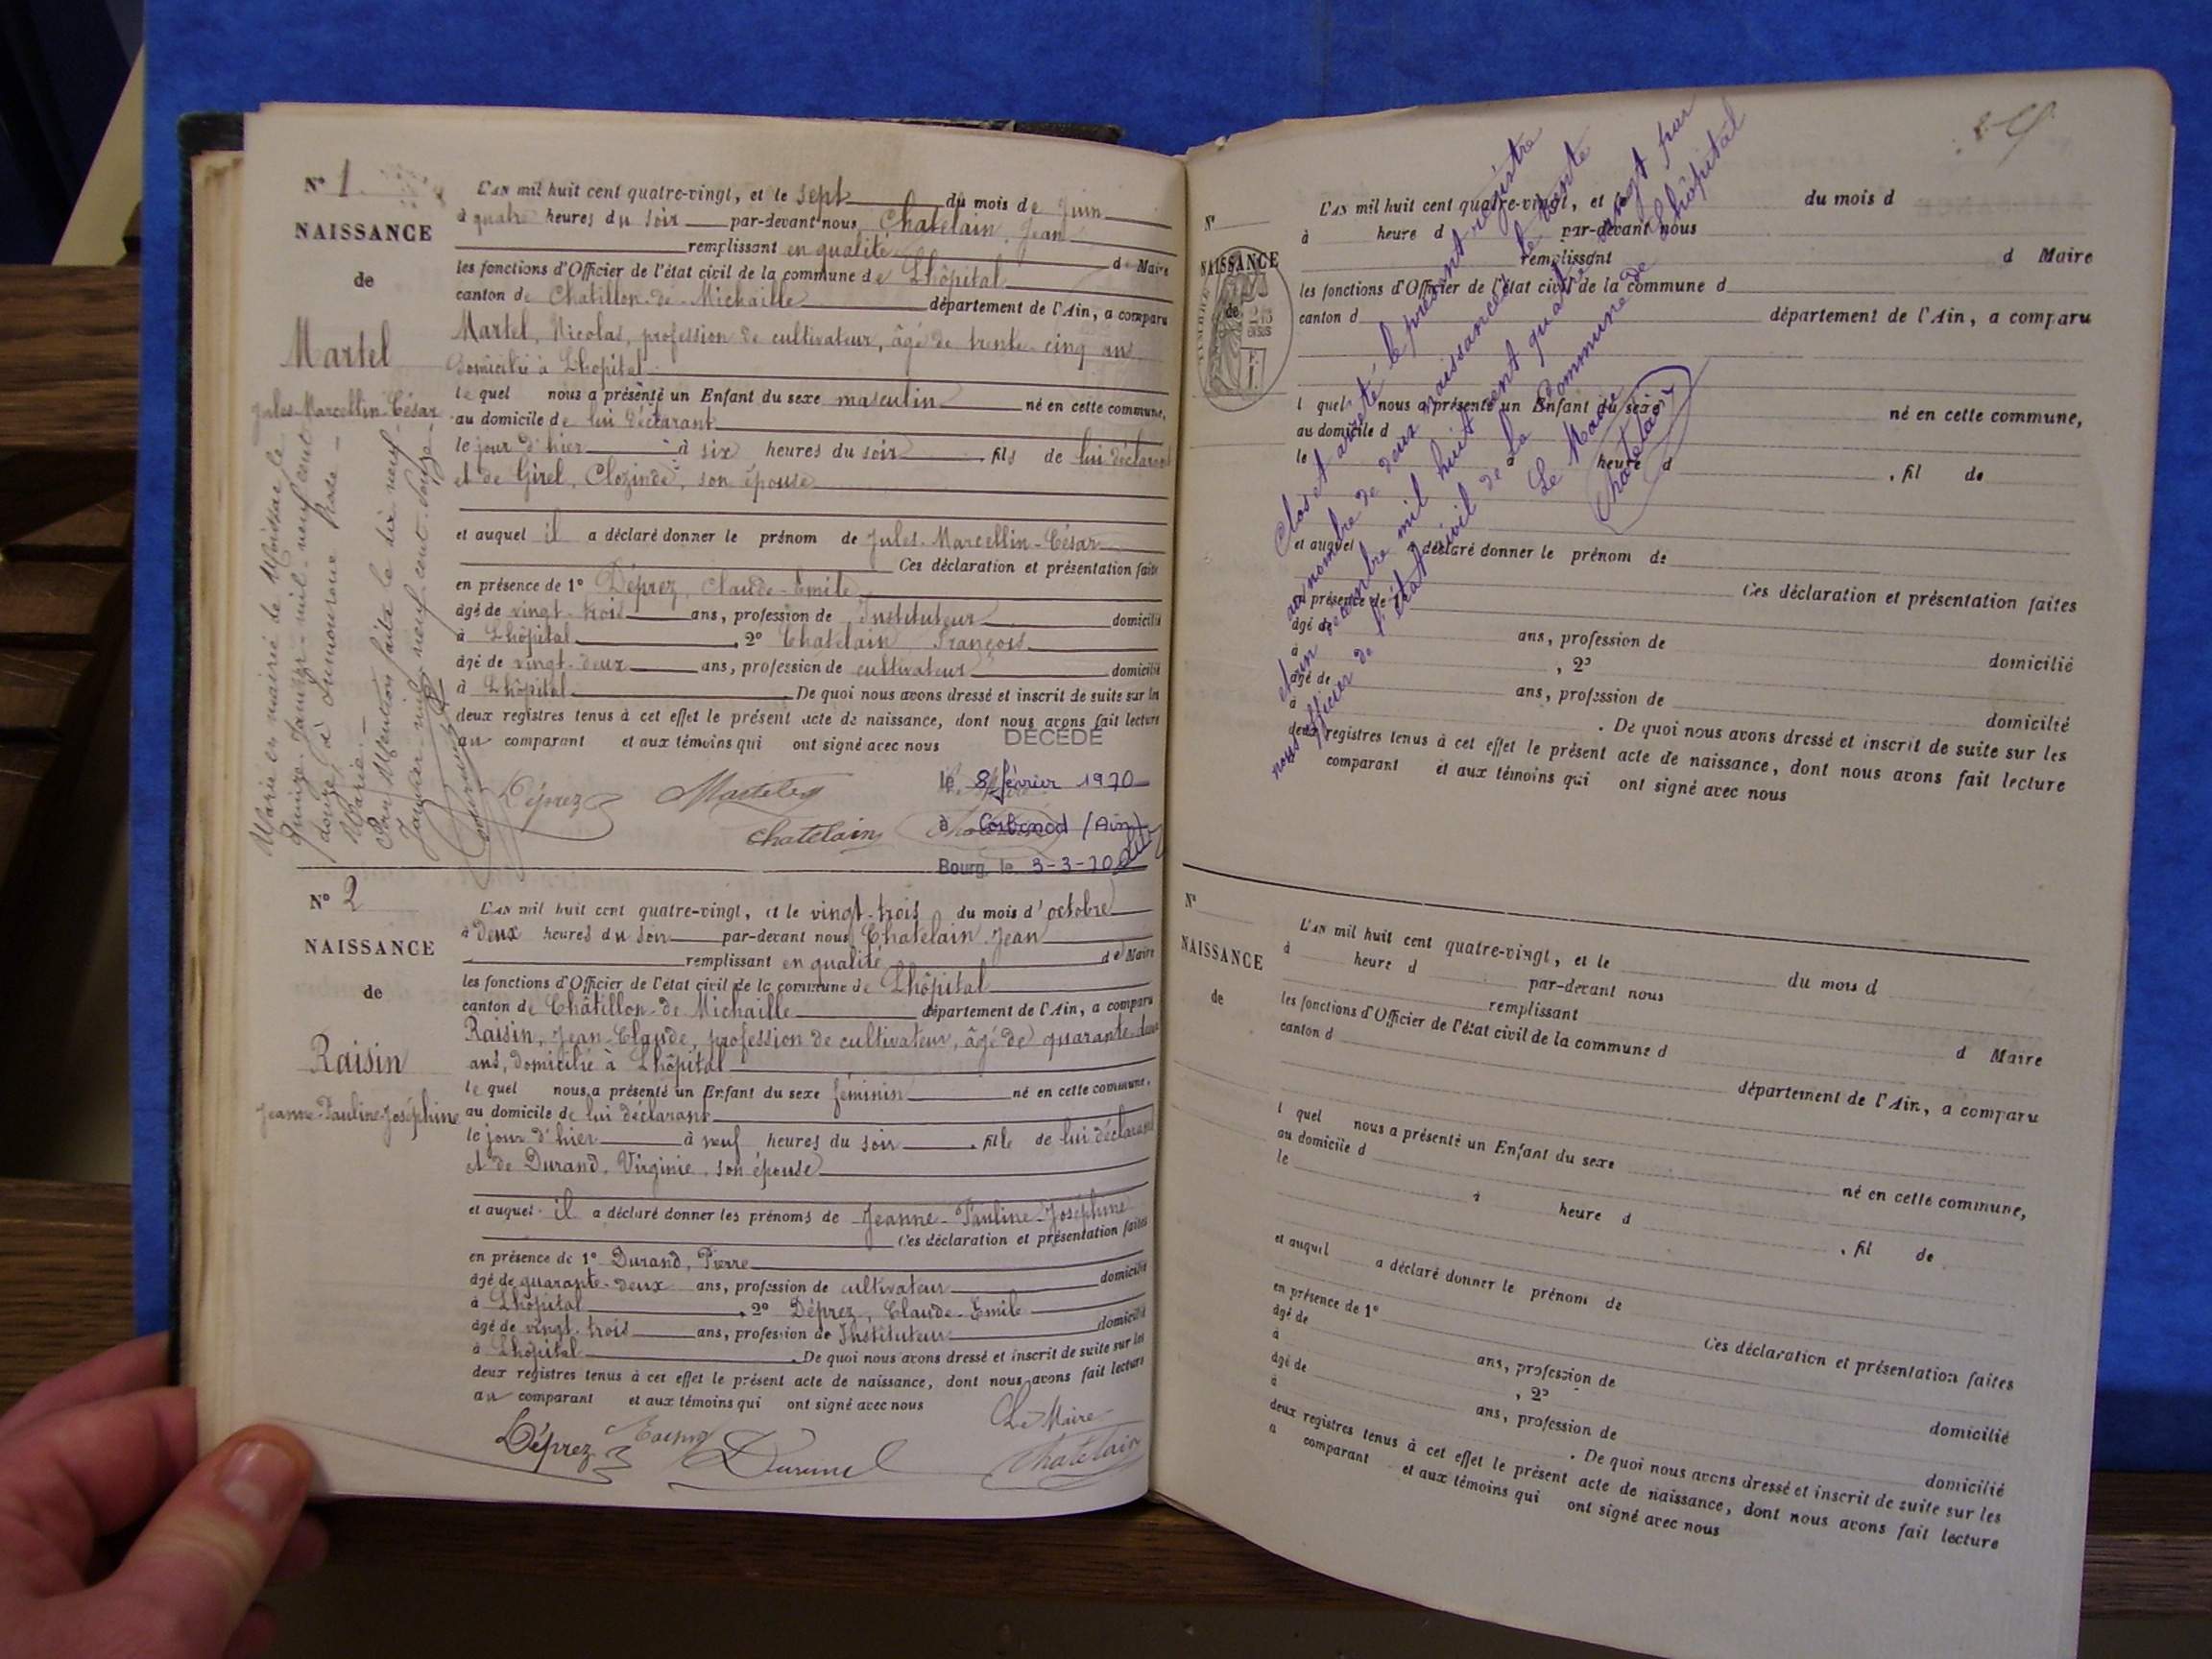 N° 1
NAISSANCE
de
Martel
Jules-Marcellin-César
Marié en mairie de le
quinze Janvier mil-neuf cent
douze, à
Marie.
Par Mention faite le dix neuf
Janvier mil neuf cent douze
L'AN mil huit cent quatre-vingt, et le sept du mois de Juin
à quatre heures du soir par-devant nous Chatelain Jean
remplissant en qualité de Maire
les fonctions d'Officier de l'état civil de la commune de Lhôpital
canton de Chatillon-de-Michaille département de l'Ain, a comparu
Martel, Nicolas, profession de cultivateur, âgé de trente-cinq ans
domicilié à Lhôpital
le quel nous a présenté un Enfant du sexe masculin né en cette commune,
au domicile de lui déclarant
le jour d'hier à six heures du soir fils de lui déclarant
et de Girel, Clozinde, son épouse
et auquel il a déclaré donner le prénom de Jules-Marcellin-César
Ces déclaration et présentation faites
en présence de 1° Déprez, Claude-Emile
âgé de vingt-trois ans, profession de Instituteur domicilié
à Lhôpital , 2° Chatelain François
âgé de vingt-deux ans, profession de cultivateur domicilié
à Lhôpital De quoi nous avons dressé et inscrit de suite sur les
deux registres tenus à cet effet le présent acte de naissance, dont nous avons fait lecture
au comparant et aux témoins qui ont signé avec nous
DÉCÉDÉ
le 8 février 1970
à Corbonod (Ain)
Bourg, le 3-3-70
Déprez
Chatelain
N° 2
NAISSANCE
de
Raisin
Jeanne-Pauline-Joséphine
L'AN mil huit cent quatre-vingt, et le vingt-trois du mois d'octobre
à deux heures du soir par-devant nous Chatelain Jean
remplissant en qualité de Maire
les fonctions d'Officier de l'état civil de la commune de Lhôpital
canton de Châtillon-de-Michaille département de l'Ain, a comparu
Raisin, Jean-Claude, profession de cultivateur, âgé de quarante-deux
ans, domicilié à Lhôpital
le quel nous a présenté un Enfant du sexe féminin né en cette commune,
au domicile de lui déclarant
le jour d'hier à neuf heures du soir , fille de lui déclarant
et de Durand, Virginie, son épouse
et auquel il a déclaré donner les prénoms de Jeanne-Pauline-Joséphine
Ces déclaration et présentation faites
en présence de 1° Durand, Pierre
âgé de quarante-deux ans, profession de cultivateur domicilié
à Lhôpital , 2° Déprez, Claude-Emile
âgé de vingt-trois ans, profession de Instituteur domicilié
à Lhôpital De quoi nous avons dressé et inscrit de suite sur les
deux registres tenus à cet effet le présent acte de naissance, dont nous avons fait lecture
au comparant et aux témoins qui ont signé avec nous
Le Maire
Déprez
Durand
Chatelain
N°
NAISSANCE
de
L'AN mil huit cent quatre-vingt, et le du mois d
à heure d par-devant nous
remplissant d Maire
les fonctions d'Officier de l'état civil de la commune d
canton d département de l'Ain, a comparu
l quel nous a présenté un Enfant du sexe né en cette commune,
au domicile d
le à heure d , fil de
et auquel a déclaré donner le prénom de
Ces déclaration et présentation faites
en présence de 1°
âgé de ans, profession de domicilié
à , 2°
âgé de ans, profession de domicilié
à . De quoi nous avons dressé et inscrit de suite sur les
deux registres tenus à cet effet le présent acte de naissance, dont nous avons fait lecture
comparant et aux témoins qui ont signé avec nous
Clos et arrêté le présent registre
au nombre de deux naissances le trente
et un décembre mil huit cent quatre vingt par
nous officier de l'état civil de la commune de Lhôpital
Le Maire
Chatelain
N°
NAISSANCE
de
L'AN mil huit cent quatre-vingt, et le du mois d
à heure d par-devant nous
remplissant d Maire
les fonctions d'Officier de l'état civil de la commune d
canton d département de l'Ain, a comparu
l quel nous a présenté un Enfant du sexe né en cette commune,
au domicile d
le à heure d , fil de
et auquel a déclaré donner le prénom de
Ces déclaration et présentation faites
en présence de 1°
âgé de ans, profession de domicilié
à , 2°
âgé de ans, profession de domicilié
à . De quoi nous avons dressé et inscrit de suite sur les
deux registres tenus à cet effet le présent acte de naissance, dont nous avons fait lecture
a comparant et aux témoins qui ont signé avec nous